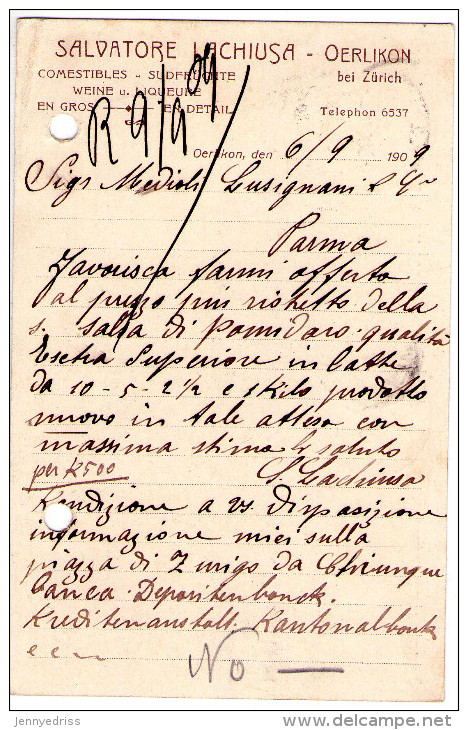 SALVATORE LACHIUSA - OERLIKON
COMESTIBLES - SÜDFRÜCHTE
WEINE u. LIQUEURE
EN GROS EN DETAIL
bei Zürich
Telephon 6537
R 9/9 09
Oerlikon, den 6/9 1909
Sigs Medioli Lusignani & Cⁱᵃ
Parma
Favorisca farmi offerta
al prezzo più ristretto della
s. salsa di Pomidoro qualità
Esctra Superiore in latte
da 10 - 5 - 2½ e ½ kilo prodotto
nuovo in tale attesa con
massima stima Li saluto
per K 500
S. Lachiusa
Kondizione a vs disposizione
informazione miei sulla
piazza di Zurigo da Chiunque
banca Depositenbanck.
Kreditenanstalt. Kantonalbank
No
jennyedriss
www.delcampe.net